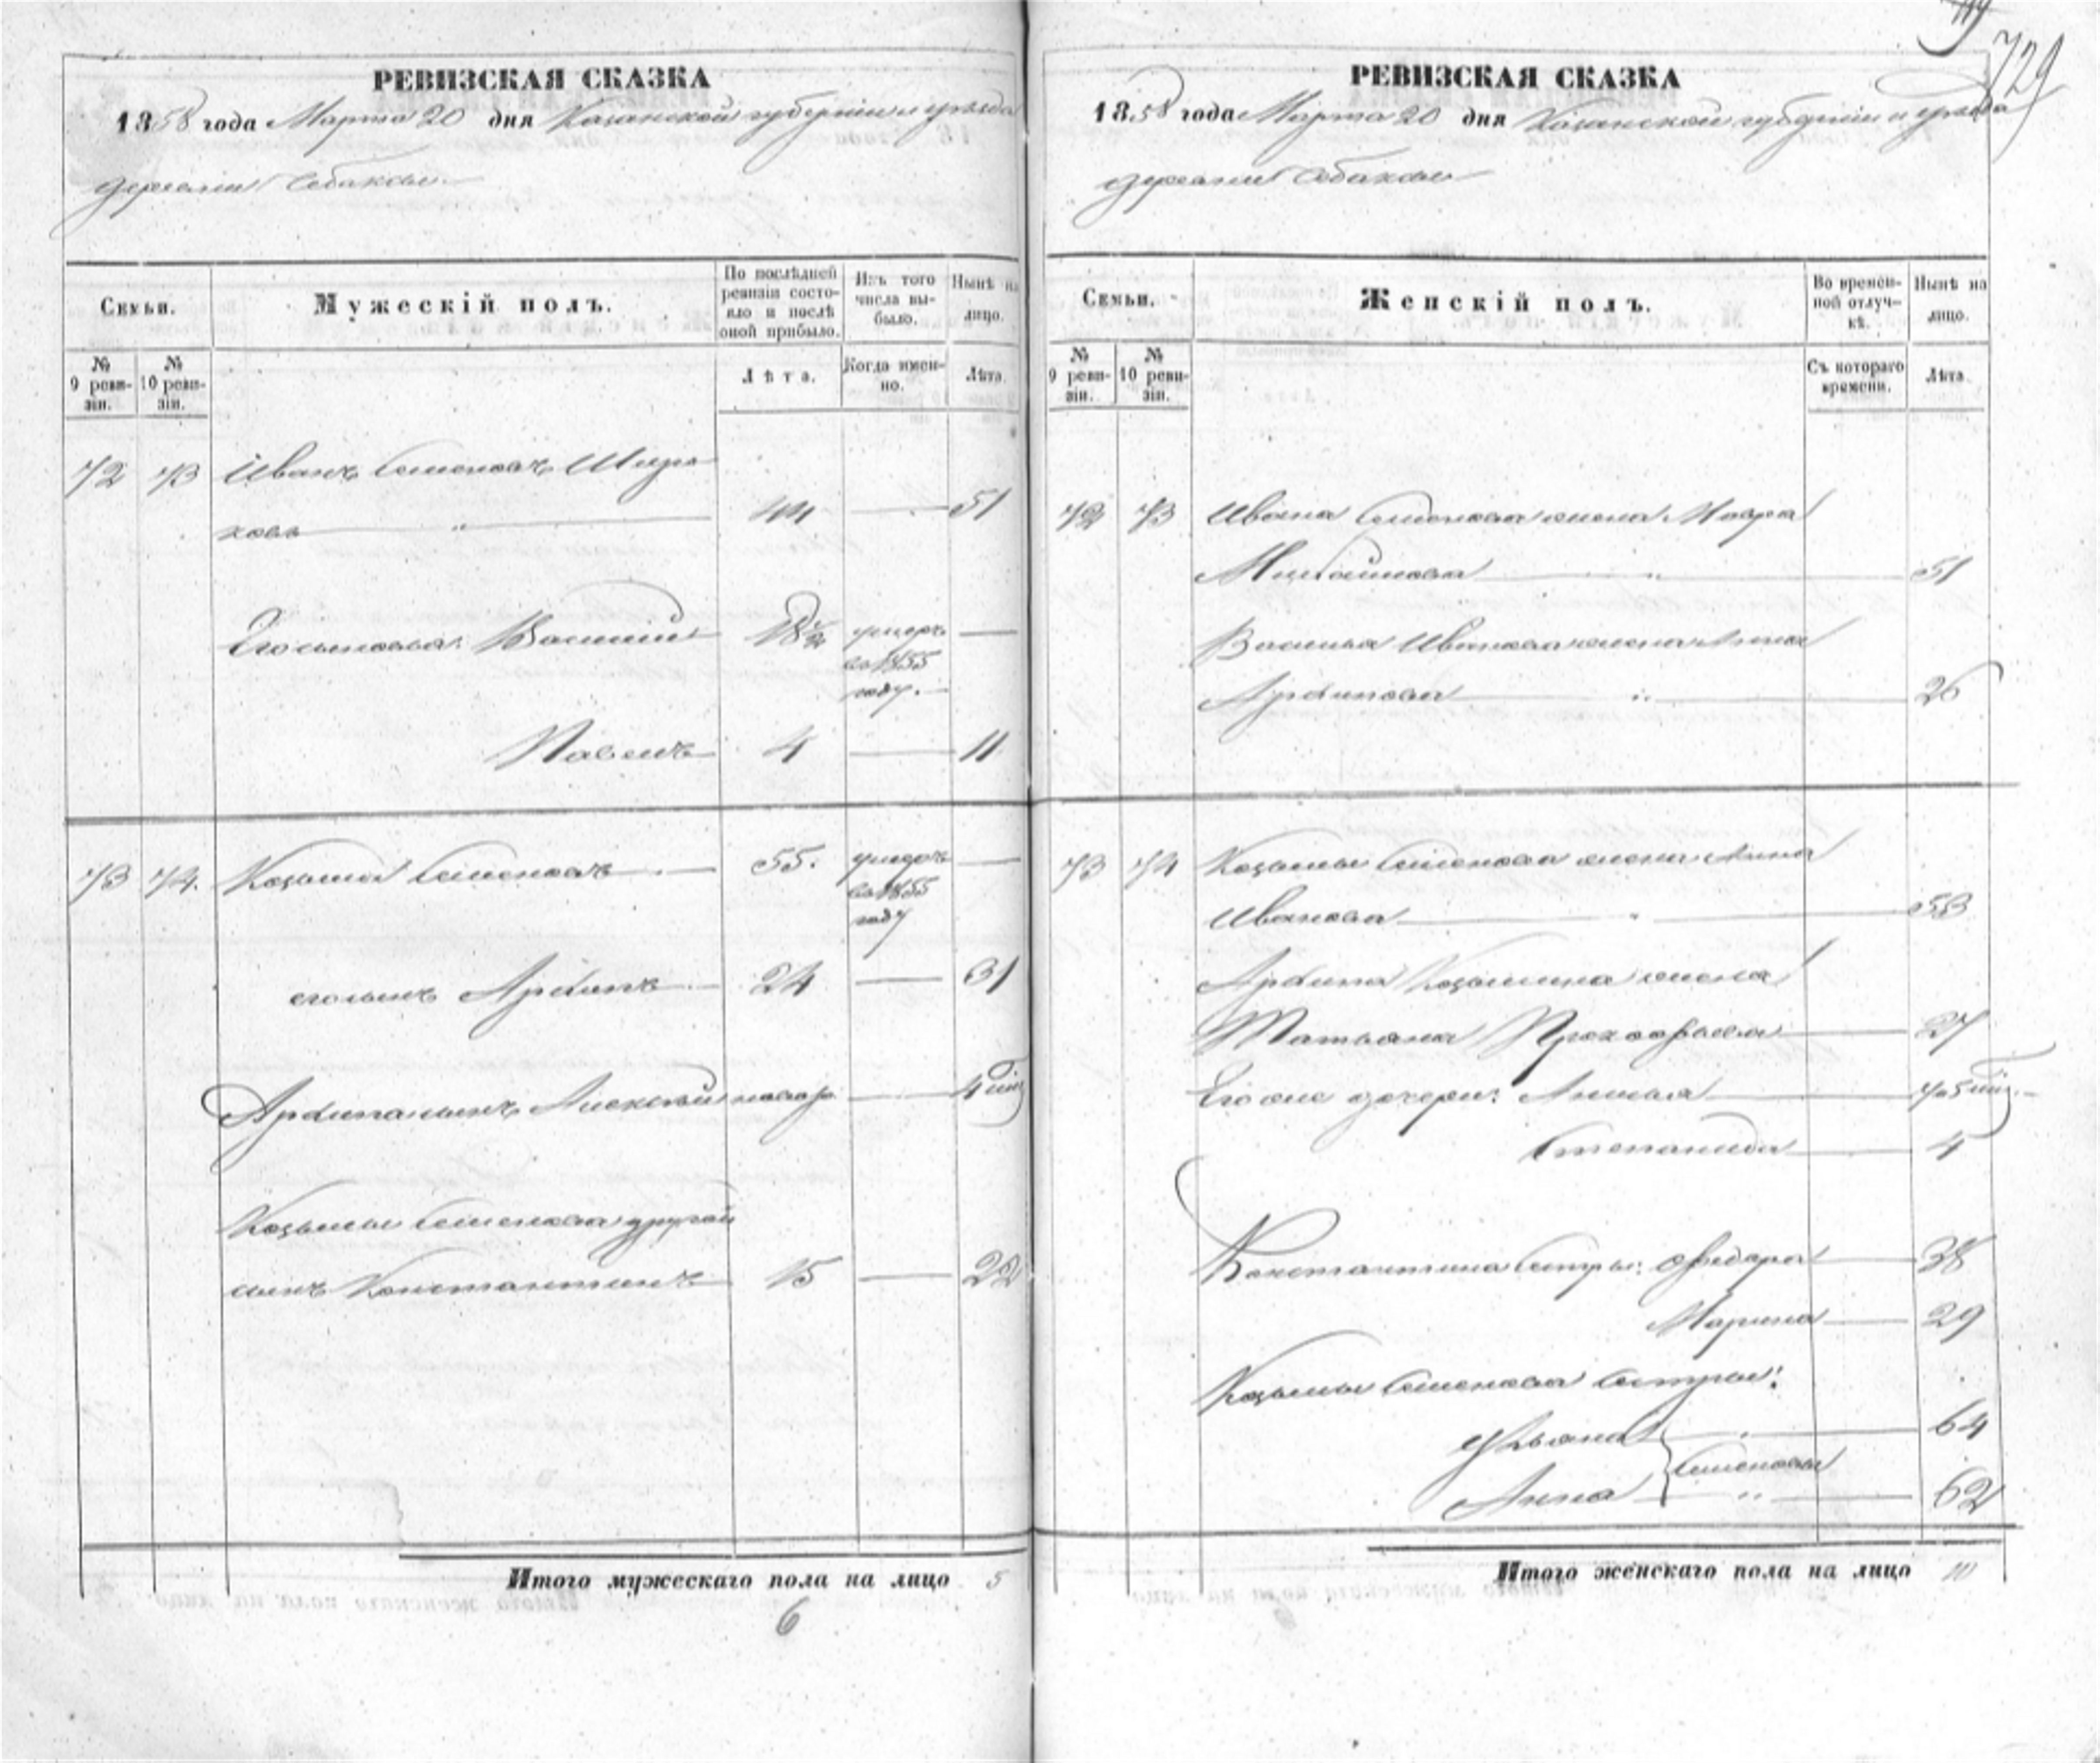 РЕВИЗСКАЯ СКАЗКА
1858 года Марта 20 дня Казанской губернии и уезда
деревни Собакол
Семьи.
Мужескій полъ.
По послѣдней ревизіи состояло и послѣ оной прибыло.
Изъ того числа выбыло.
Нынѣ на лицо.
№ 9 ревизіи.
№ 10 ревизіи.
Лѣта.
Когда именно.
Лѣта.
72 73 Иванъ Семеновъ
44 — 51
Его сыновья: Василий 18½ умеръ въ 1855 году. —
Павелъ 4 — 11
73 74. Козьма Семеновъ — 55. умеръ въ 1855 году —
его сынъ Архипъ — 24 — 31
Архипа сынъ Алексей новор. — 4 м
Козьмы Семенова другой
сынъ Константинъ 15 — 22
Итого мужескаго пола на лицо 5
6
729
РЕВИЗСКАЯ СКАЗКА
1858 года Марта 20 дня Казанской губернии и уезда
деревни Собакол
Семьи.
Женскій полъ.
Во временной отлучкѣ.
Нынѣ на лицо.
№ 9 ревизіи.
№ 10 ревизіи.
Съ котораго времени.
Лѣта
72 73 Ивана Семенова жена Мавра
Михайлова — 51
Василья Иванова жена Анна
Архипова — 26
73 74 Козьмы Семенова жена Анна
Иванова — 53
Архипа Козьмина жена
Татьяна Прокофьева — 27
Его же дочери:
Степанида — 4
Константина Сестры: Федора — 38
Марина — 29
Козьмы Семенова Сестры:
Ульяна — 64
Семеновы
Анна — 62
Итого женскаго пола на лицо 10